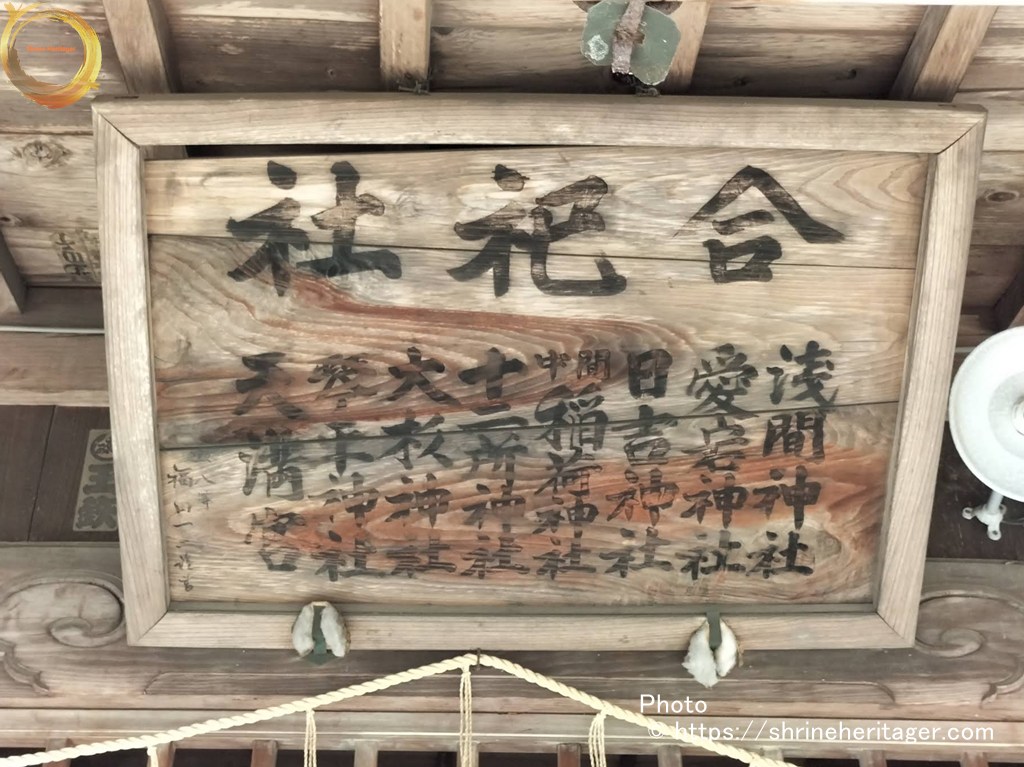 合祀社
浅間神社
愛宕神社
日吉神社
間中稲荷神社
十二所神社
大杉神社
琴平神社
天満宮
Photo
© https://shrineheritager.com